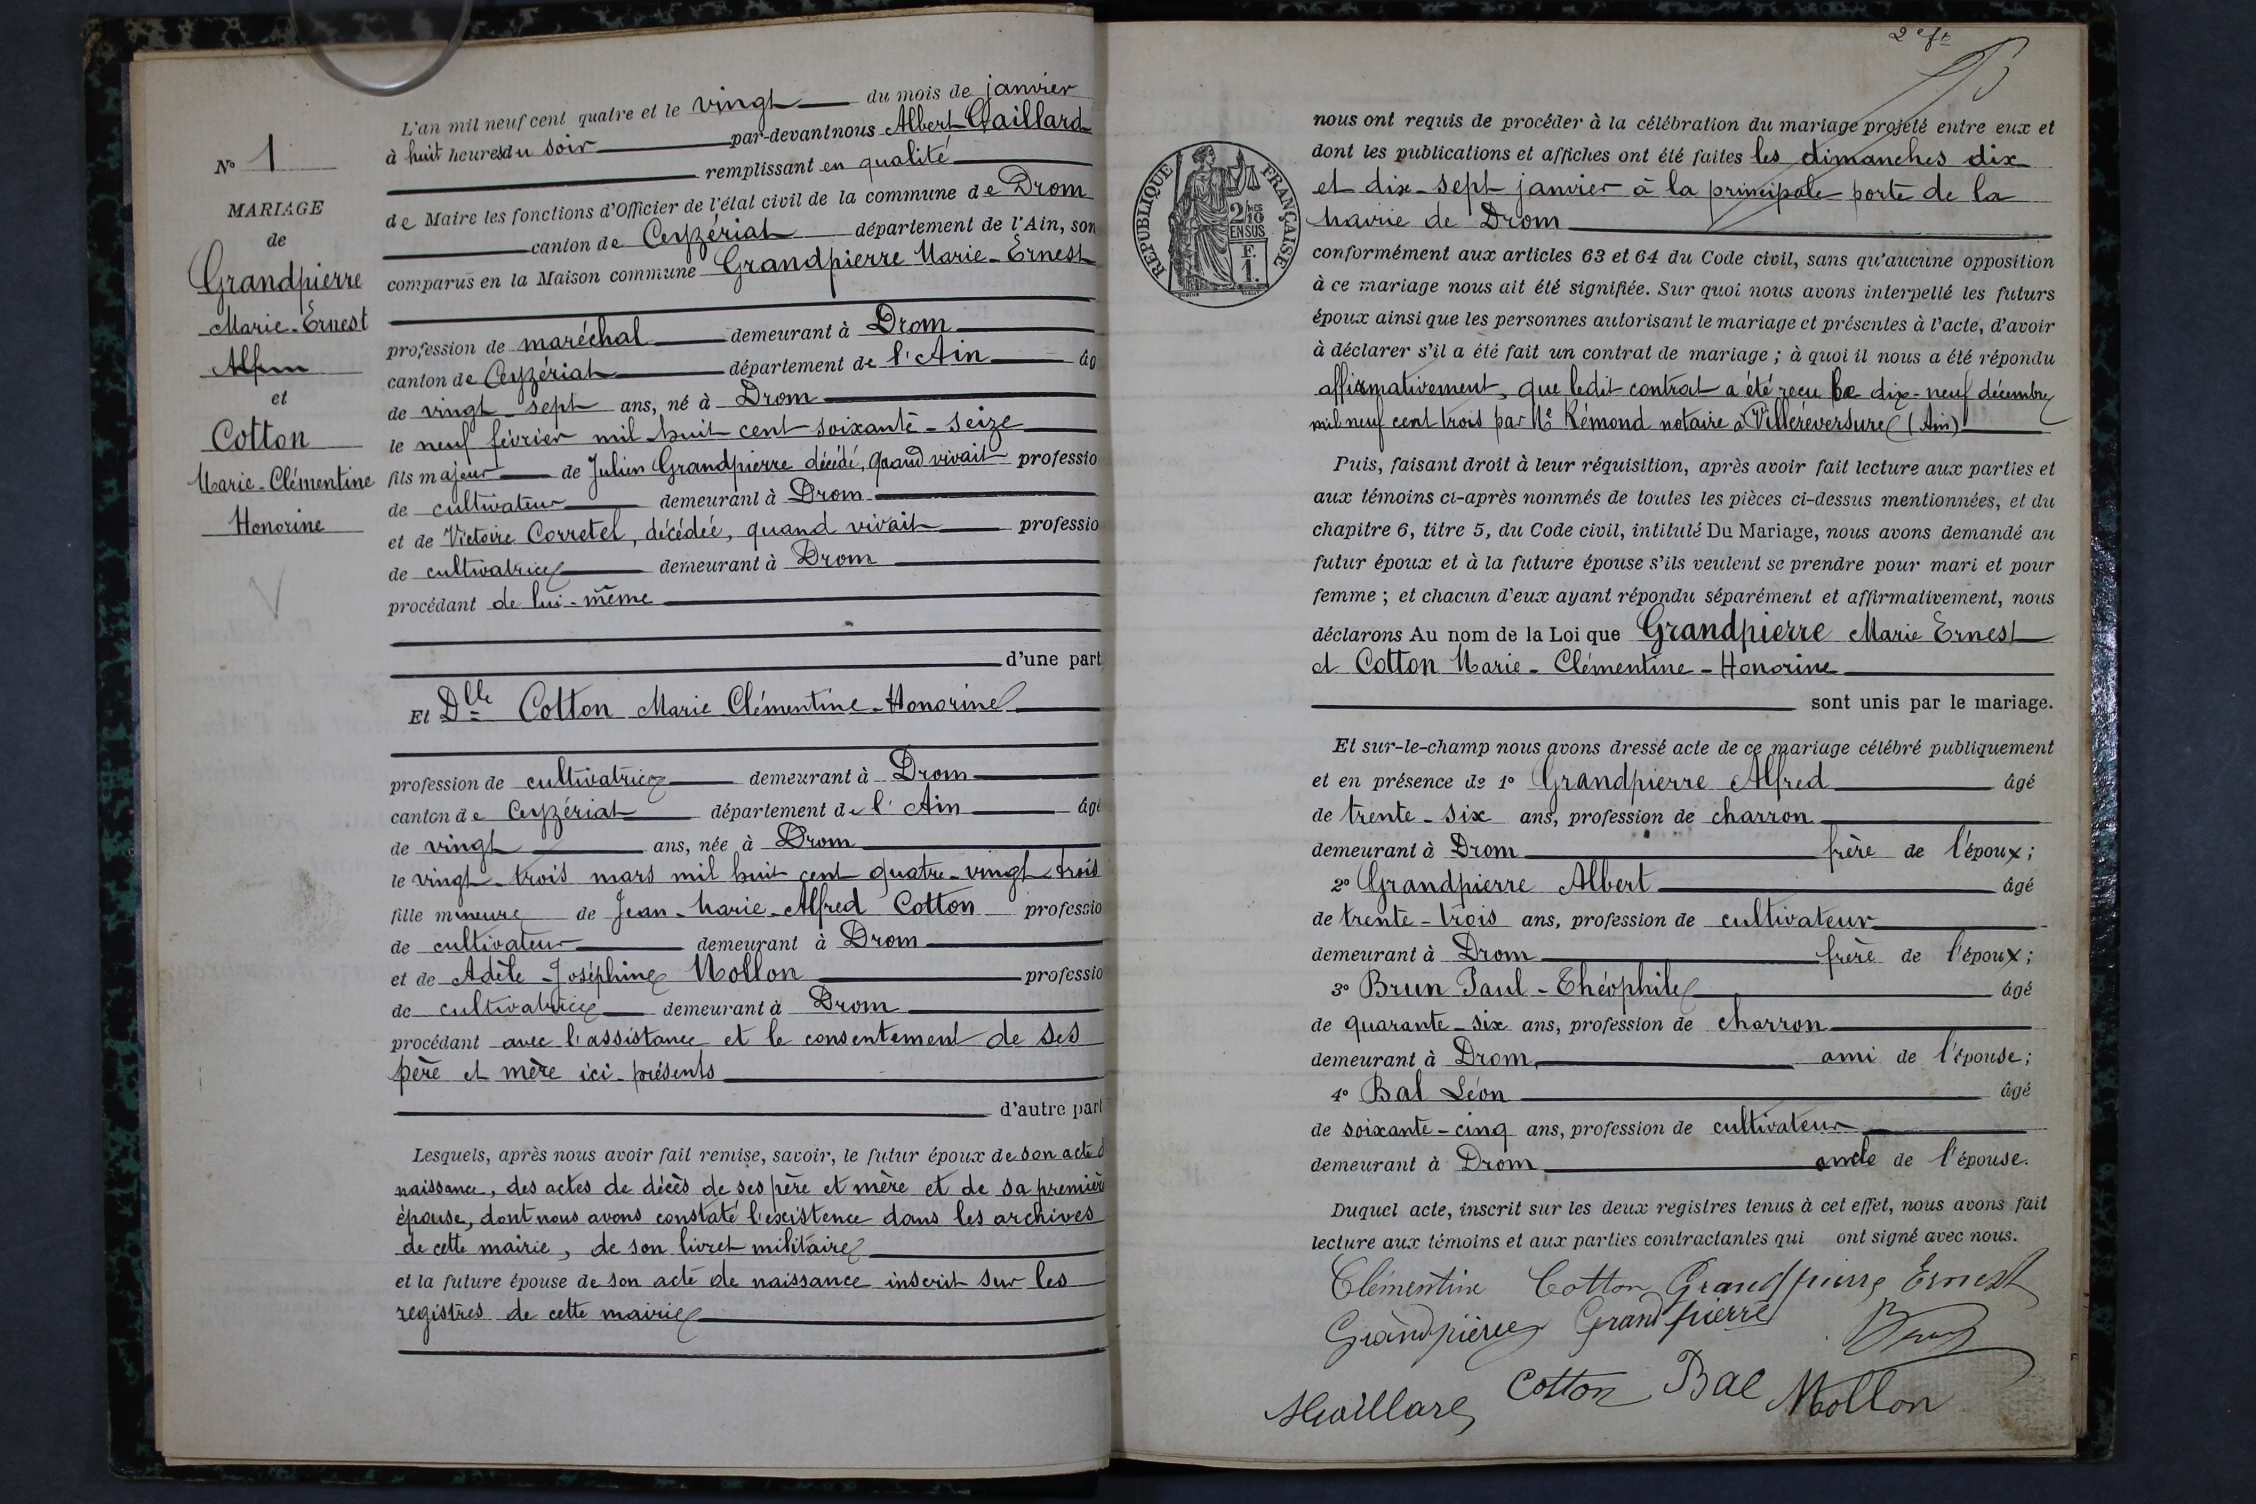 N° 1
MARIAGE
de
Grandpierre
Marie-Ernest
et
Cotton
Marie-Clémentine
Honorine
L'an mil neuf cent quatre et le vingt du mois de janvier
à huit heures du soir par-devant nous Albert Gaillard
remplissant en qualité
de Maire les fonctions d'Officier de l'état civil de la commune de Drom
canton de Ceyzériat département de l'Ain, son
comparus en la Maison commune Grandpierre Marie-Ernest
profession de maréchal demeurant à Drom
canton de Ceyzériat département de l'Ain âg
de vingt-sept ans, né à Drom
le neuf février mil huit cent soixante-seize
fils majeur de Julien Grandpierre décédé, quand vivait professio
de cultivateur demeurant à Drom
et de Victoire Corretel, décédée, quand vivait professio
de cultivatrice demeurant à Drom
procédant de lui-même
d'une part
Et Dlle Cotton Marie Clémentine-Honorine
profession de cultivatrice demeurant à Drom
canton de Ceyzériat département de l'Ain âgé
de vingt ans, née à Drom
le vingt-trois mars mil huit cent quatre-vingt-trois
fille mineure de Jean-Marie-Alfred Cotton professio
de cultivateur demeurant à Drom
et de Adèle-Joséphine Mollon professio
de cultivatrice demeurant à Drom
procédant avec l'assistance et le consentement de ses
père et mère ici présents
d'autre part
Lesquels, après nous avoir fait remise, savoir, le futur époux de son acte d
naissance, des actes de décès de ses père et mère et de sa premièr
épouse, dont nous avons constaté l'existence dans les archives
de cette mairie, de son livret militaire
et la future épouse de son acte de naissance inscrit sur les
registres de cette mairie
2e ft
RÉPUBLIQUE FRANÇAISE
2/10
EN SUS
F.
1.
nous ont requis de procéder à la célébration du mariage projeté entre eux et
dont les publications et affiches ont été faites les dimanches dix
et dix-sept janvier à la principale porte de la
mairie de Drom
conformément aux articles 63 et 64 du Code civil, sans qu'aucune opposition
à ce mariage nous ait été signifiée. Sur quoi nous avons interpellé les futurs
époux ainsi que les personnes autorisant le mariage et présentes à l'acte, d'avoir
à déclarer s'il a été fait un contrat de mariage ; à quoi il nous a été répondu
affirmativement, que ledit contrat a été reçu le dix-neuf décembre
mil neuf cent trois par Me Rémond notaire à Villereversure (Ain)
Puis, faisant droit à leur réquisition, après avoir fait lecture aux parties et
aux témoins ci-après nommés de toutes les pièces ci-dessus mentionnées, et du
chapitre 6, titre 5, du Code civil, intitulé Du Mariage, nous avons demandé au
futur époux et à la future épouse s'ils veulent se prendre pour mari et pour
femme ; et chacun d'eux ayant répondu séparément et affirmativement, nous
déclarons Au nom de la Loi que Grandpierre Marie Ernest
et Cotton Marie-Clémentine-Honorine
sont unis par le mariage.
Et sur-le-champ nous avons dressé acte de ce mariage célébré publiquement
et en présence de 1° Grandpierre Alfred âgé
de trente-six ans, profession de charron
demeurant à Drom frère de l'époux ;
2° Grandpierre Albert âgé
de trente-trois ans, profession de cultivateur
demeurant à Drom frère de l'époux ;
3° Brun Paul-Théophile âgé
de quarante-six ans, profession de charron
demeurant à Drom ami de l'épouse ;
4° Bal Léon âgé
de soixante-cinq ans, profession de cultivateur
demeurant à Drom oncle de l'épouse.
Duquel acte, inscrit sur les deux registres tenus à cet effet, nous avons fait
lecture aux témoins et aux parties contractantes qui ont signé avec nous.
Clémentine Cotton Grandpierre Ernest
Grandpierre Grandpierre Brun
AGaillard Cotton Bal Mollon